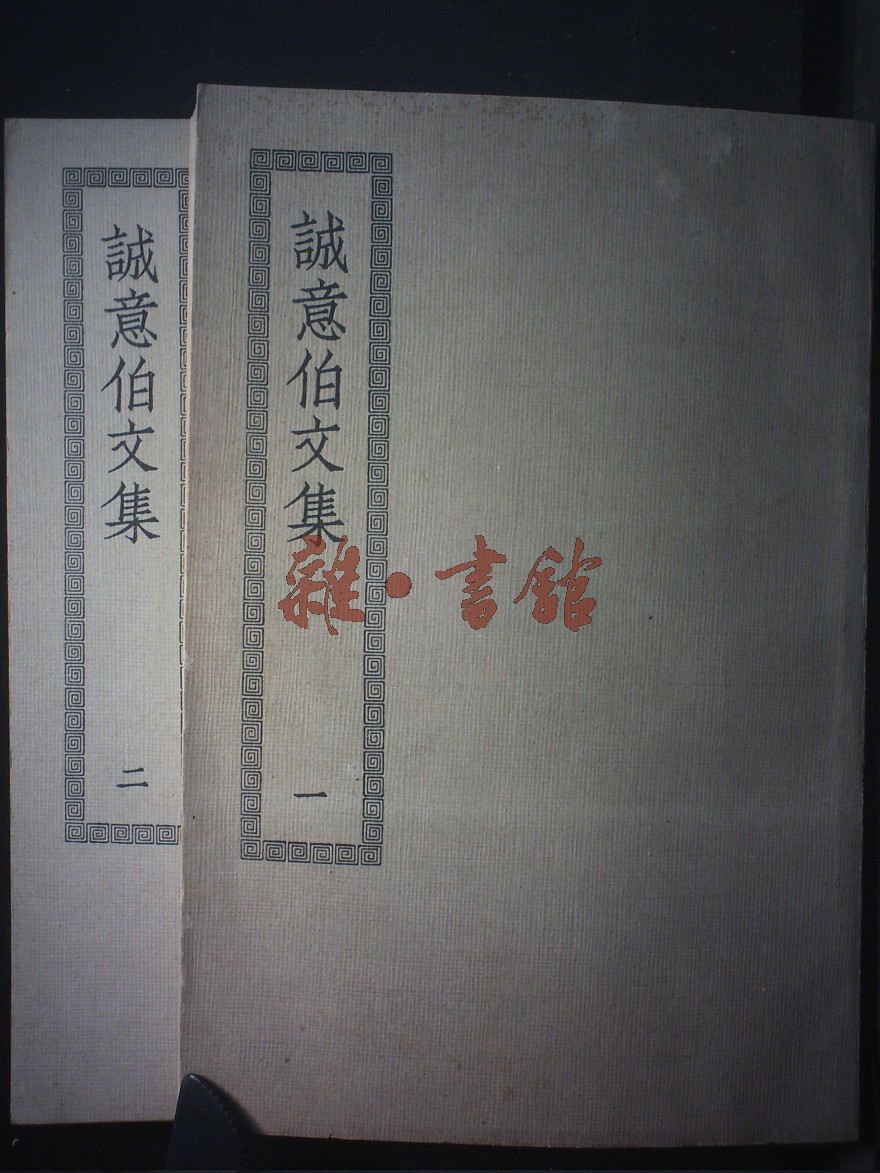 誠意伯文集
一
誠意伯文集
二
雜·書館